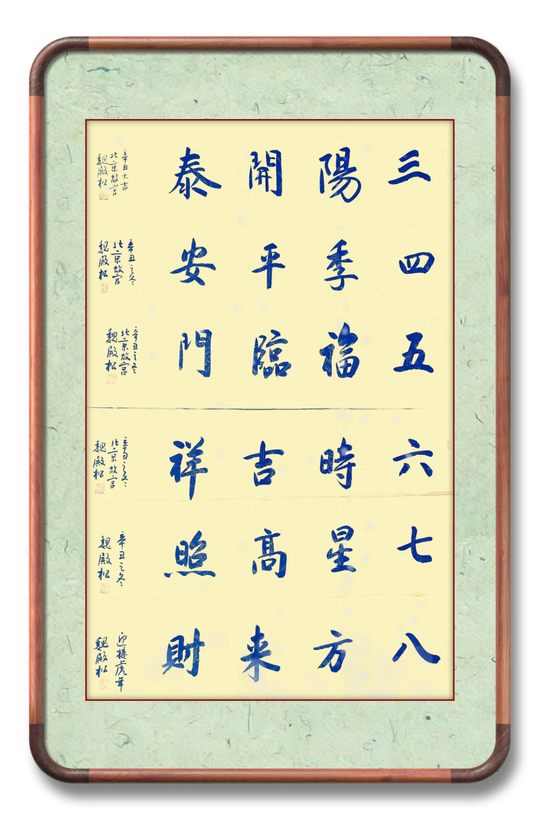 三陽開泰
辛丑大吉
北京故宫
魏殿松
四季平安
辛丑之冬
北京故宫
魏殿松
五福臨門
辛丑之冬
北京故宫
魏殿松
六時吉祥
辛丑之冬
北京故宫
魏殿松
七星高照
辛丑之冬
魏殿松
八方来財
迎接虎年
魏殿松